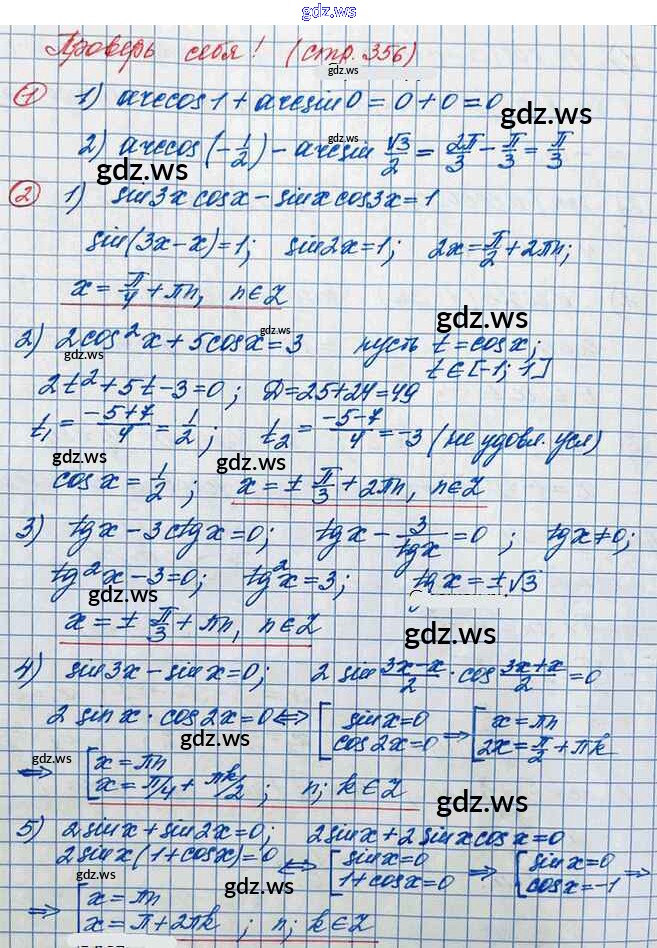 gdz.ws
Проверь себя! (стр. 356)
gdz.ws
① 1) arccos 1 + arcsin 0 = 0 + 0 = 0
gdz.ws
gdz.ws
2) arccos(-1/2) - arcsin √3/2 = 2π/3 - π/3 = π/3
gdz.ws
② 1) sin3x cosx - sinx cos3x = 1
sin(3x-x)=1; sin2x=1; 2x = π/2 + 2πn;
x = π/4 + πn, n∈Z
gdz.ws
gdz.ws
2) 2cos²x + 5cosx = 3 пусть t = cosx;
gdz.ws
t∈[-1; 1]
2t² + 5t - 3 = 0; D = 25 + 24 = 49
t₁ = (-5+7)/4 = 1/2; t₂ = (-5-7)/4 = -3 (не удовл. усл)
gdz.ws
cosx = 1/2; x = ± π/3 + 2πn, n∈Z
3) tgx - 3ctgx = 0; tgx - 3/tgx = 0; tgx ≠ 0;
tg²x - 3 = 0; tg²x = 3; tgx = ±√3
gdz.ws
x = ± π/3 + πn, n∈Z
gdz.ws
4) sin3x - sinx = 0; 2 sin (3x-x)/2 · cos (3x+x)/2 = 0
2 sinx · cos2x = 0 ⟺ [ sinx = 0 ⟹ [ x = πn
cos2x = 0 2x = π/2 + πk
gdz.ws
gdz.ws
⟹ [ x = πn
x = π/4 + πk/2; n; k∈Z
gdz.ws
5) 2sinx + sin2x = 0; 2sinx + 2 sinx cosx = 0
2 sinx (1 + cosx) = 0 ⟺ [ sinx = 0 ⟹ [ sinx = 0
1 + cosx = 0 cosx = -1 ⟹
gdz.ws
gdz.ws
⟹ [ x = πn
x = π + 2πk; n; k∈Z